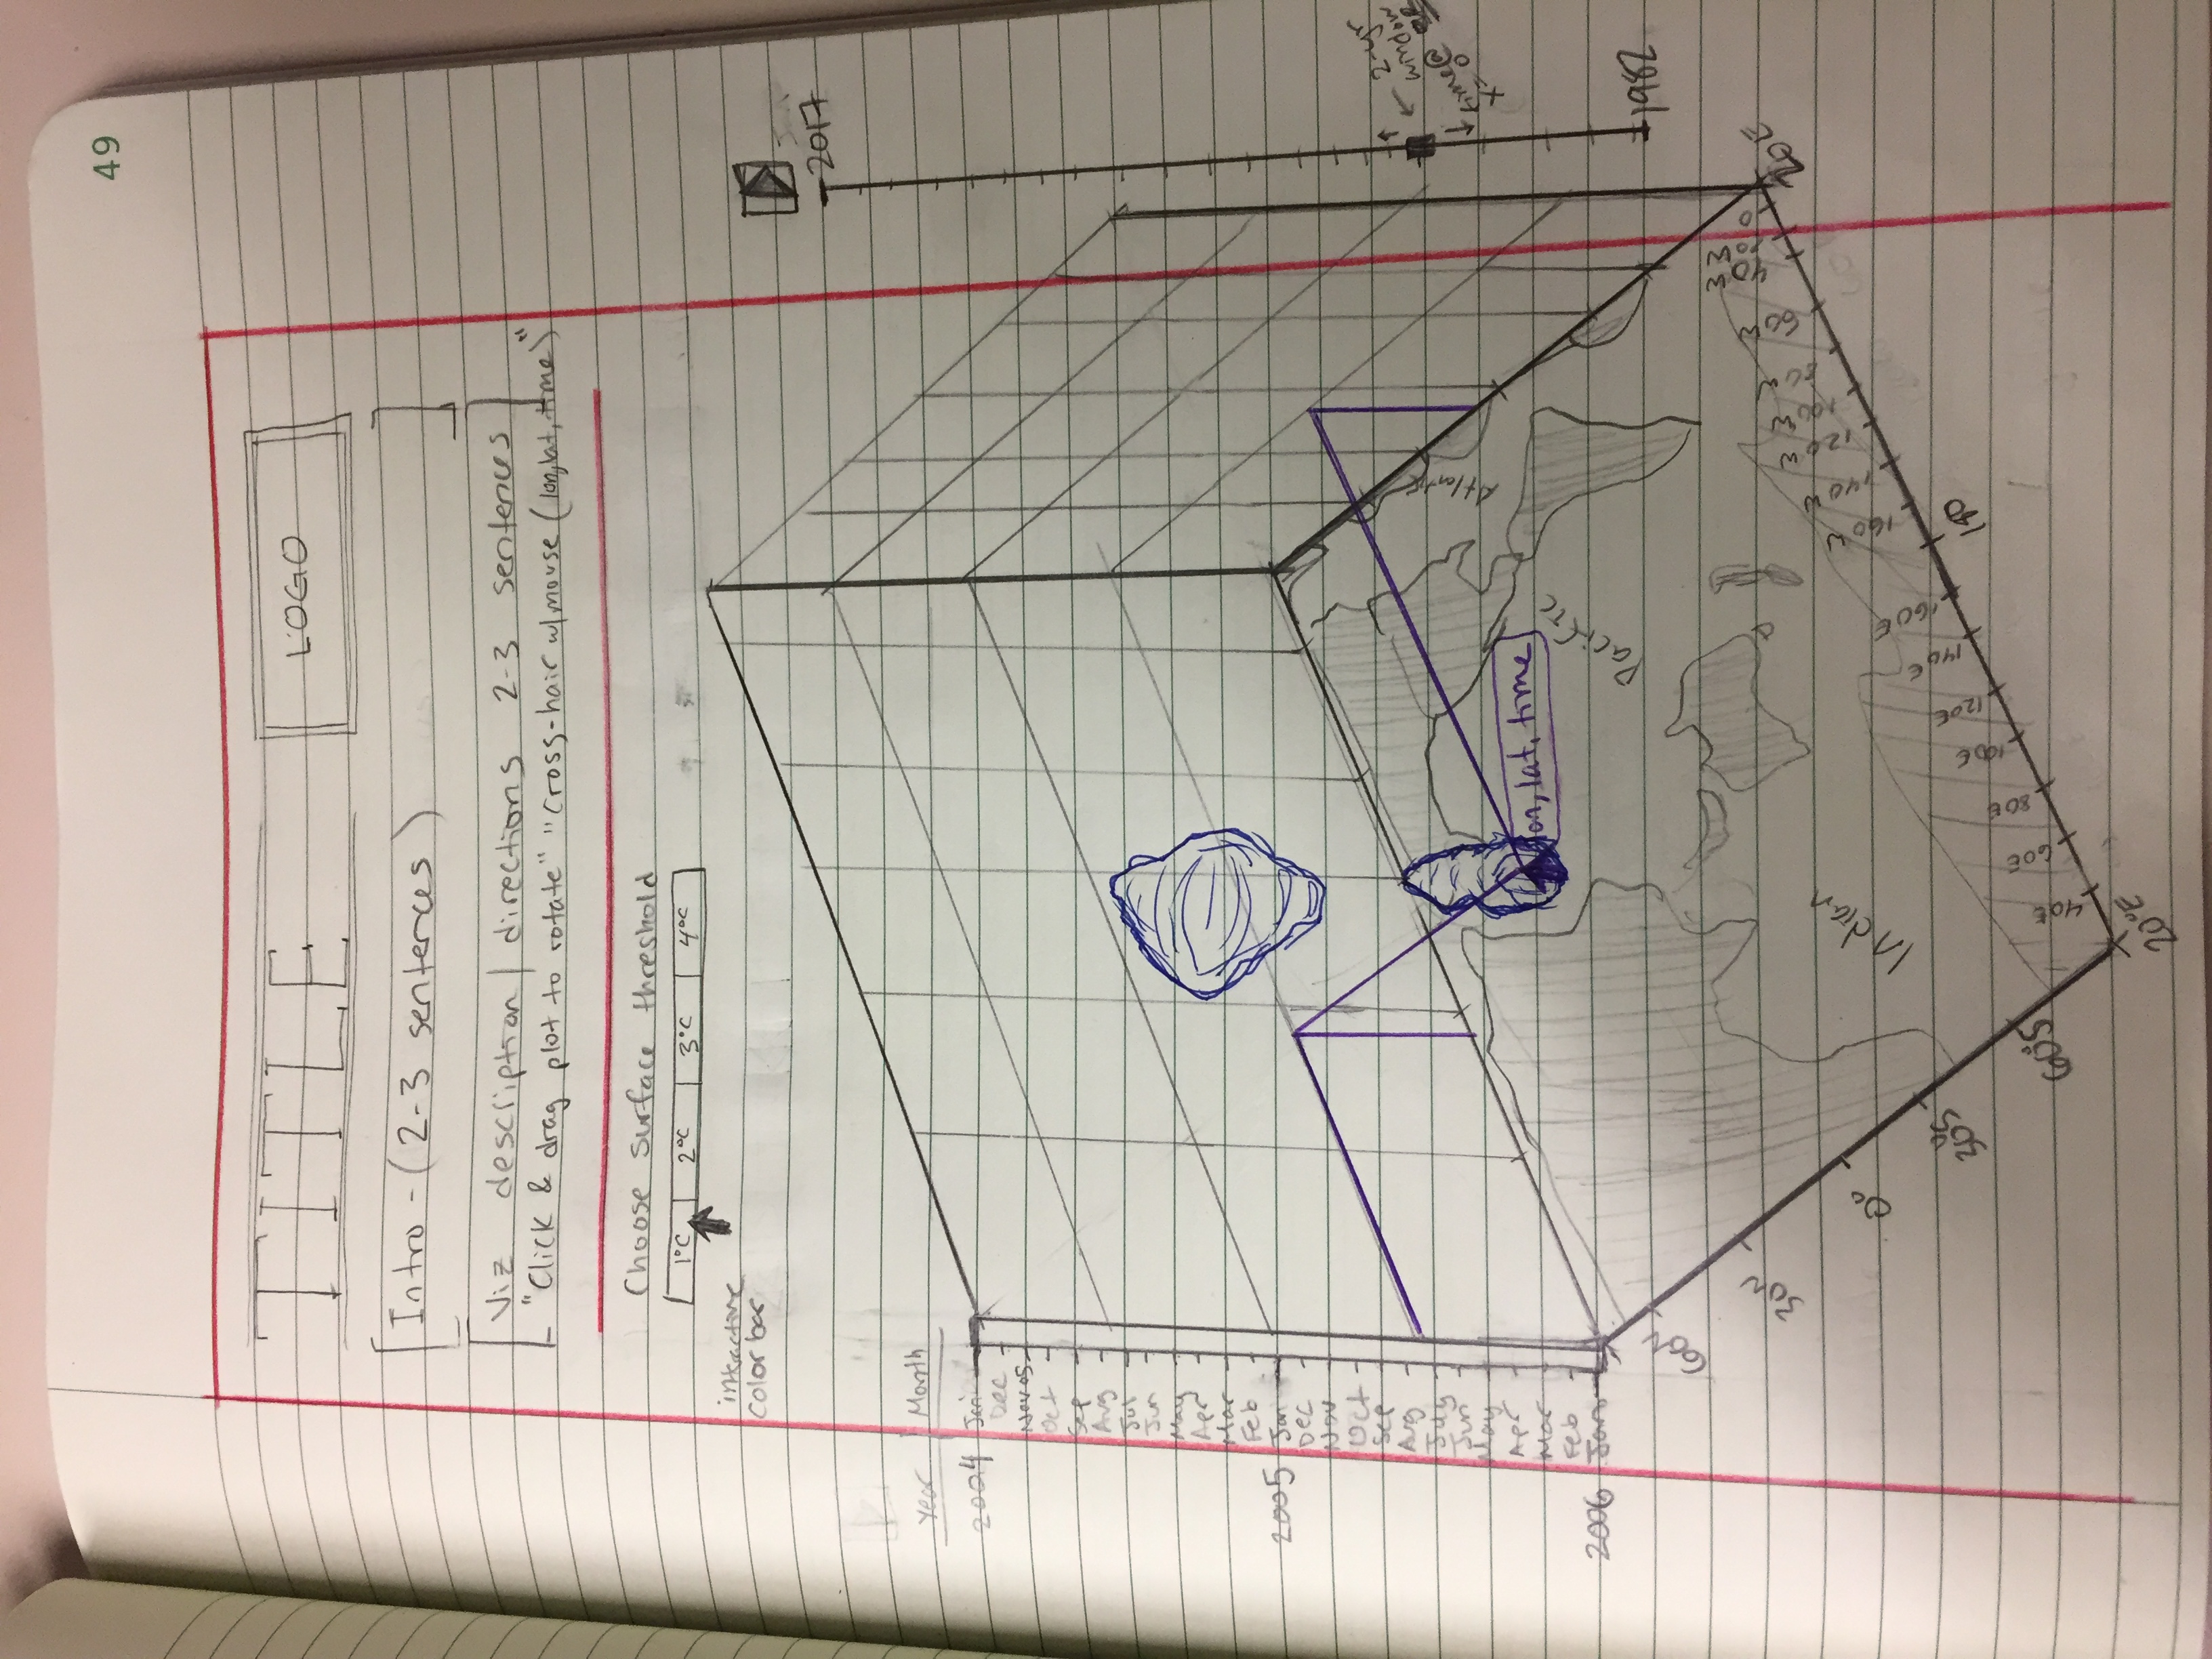 49
TITLE
LOGO
Intro - (2-3 sentences)
Viz description / directions 2-3 sentences
"Click & drag plot to rotate" "cross-hair w/mouse (lon,lat, time)"
Choose surface threshold
1°C 2°C 3°C 4°C
interactive
color bar
2017
Year Month
2004 Jan
Dec
Nov 05
Oct
Sep
Aug
Jul
Jun
May
Apr
Mar
Feb
2005 Jan
Dec
Nov
Oct
Sep
Aug
July
Jun
May
Apr
Mar
Feb
2006 Jan
← 2-yr
window
time @
x = 0
1982
Atlantic
lon, lat, time
Pacific
Indian
60N
30N
0°
30°S
60°S
20°E
40E
60E
80E
100E
120E
140E
160E
180
160W
140W
120W
100W
80W
60W
40W
20W
0
20E